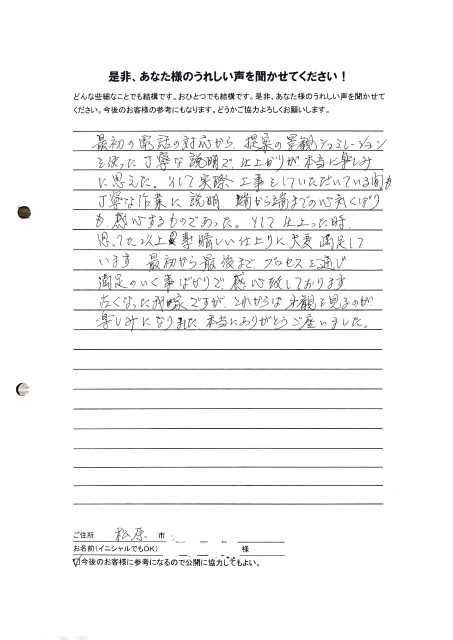 是非、あなた様のうれしい声を聞かせてください！
どんな些細なことでも結構です。おひとつでも結構です。是非、あなた様のうれしい声を聞かせて
ください。今後のお客様の参考にもなります。どうかご協力よろしくお願いします。
最初の電話の対応から、提案の景観シュミレーション
を使った丁寧な説明で、仕上がりが本当に楽しみ
に思えた。そして実際工事をしていただいている間も
丁寧な作業に説明 端から端までの心気くばり
も感心するものであった。そして仕上った時、
思ってた以上に素晴しい仕上りに大変満足して
います。最初から最後までプロセスを通じ
満足のいく事ばかりで感心致しております
古くなった我家ですが、これからは外観を見るのが
楽しみになりました、本当にありがとうご座いました。
ご住所 松原 市
お名前(イニシャルでもOK) 様
☑今後のお客様に参考になるので公開に協力してもよい。